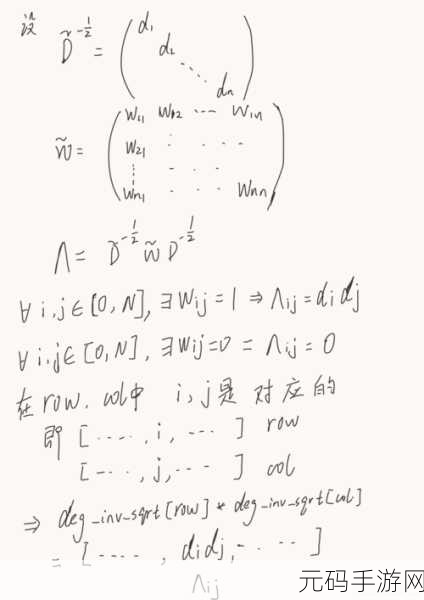 设 D̃^{-1/2} = ( d₁ d₂ ⋱ dₙ )
W̃ = ( W₁₁ W₁₂ ⋯ W₁ₙ
W₂₁ ⋯
⋮
Wₙ₁ ⋯ Wₙₙ )
Λ = D̃^{-1/2} W̃ D^{-1/2}
∀ i,j ∈ [0, N], ∃ Wij = 1 ⇒ Λij = di dj
∀ i,j ∈ [0, N], ∃ Wij = 0 = Λij = 0
在 row. col中 i, j是 对应的
即 [ ⋯⋯, i, ⋯ ] row
[ ⋯⋯, j, ⋯ ] col
⇒ deg_inv_sqrt[row] * deg_inv_sqrt[col]
= [ ⋯⋯ , di dj, ⋯⋯ ]
Λij
元码手游网